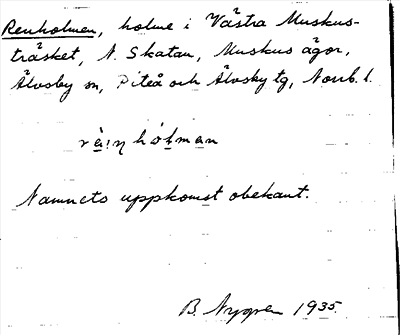 Renholmen, holme i Västra Muskus-
träsket, N. Skatan, Muskus ägor,
Älvsby sn, Piteå och Älvsby tg, Norrb. l.
Namnets uppkomst obekant.
B. Nygren 1935.